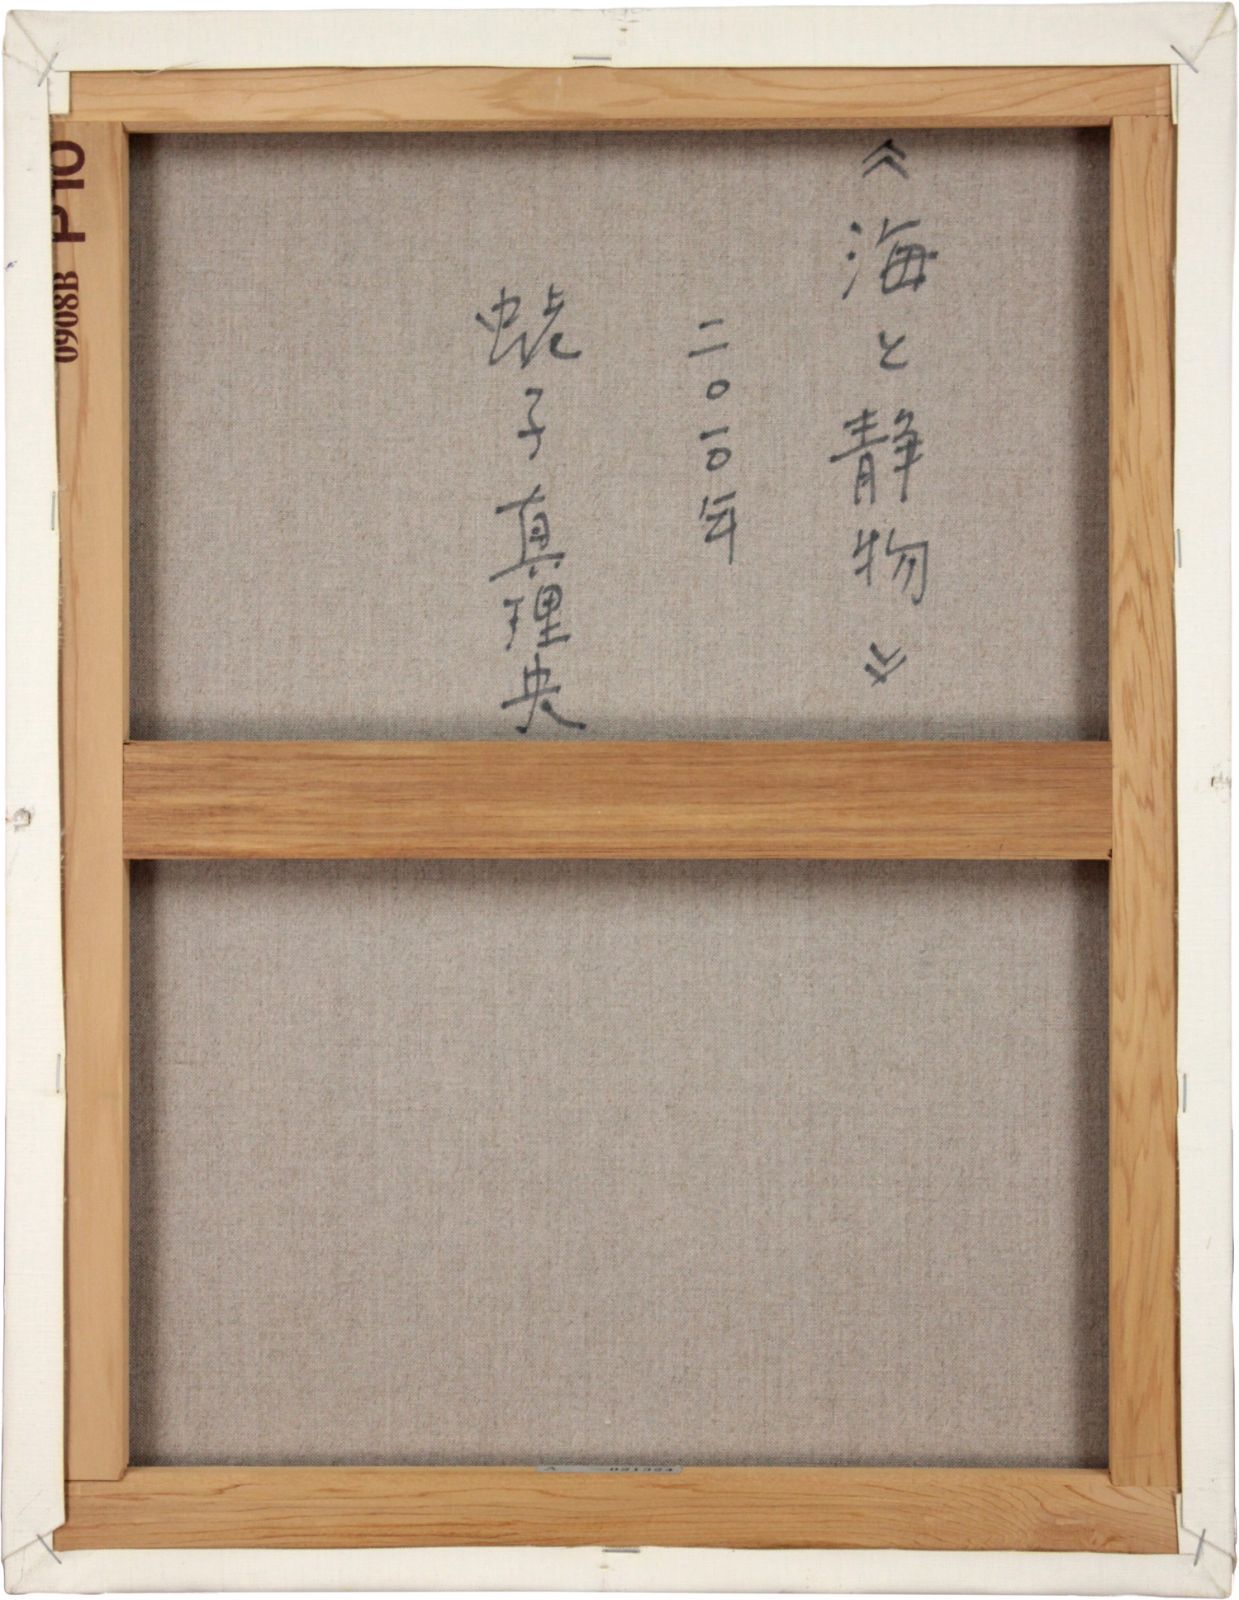 《海と静物》
二〇一〇年
蛯子真理央
P10
0908B